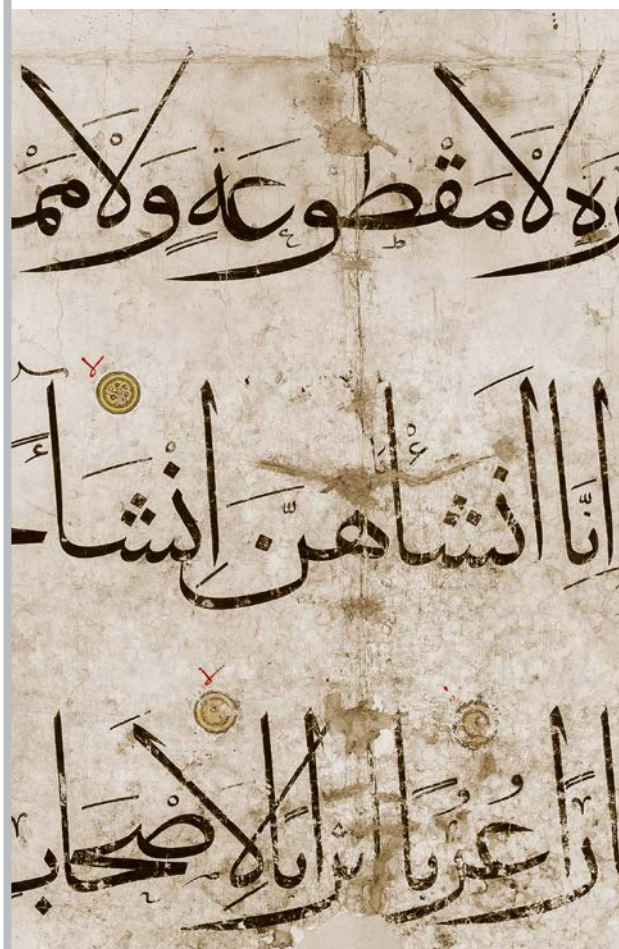 رَةٍ لَا مَقْطُوعَةٍ وَلَا مَمْ
اِنَّا اَنْشَأْنَاهُنَّ اِنْشَاءً
ارًا عُرُبًا اَتْرَابًا لِاَصْحَابِ